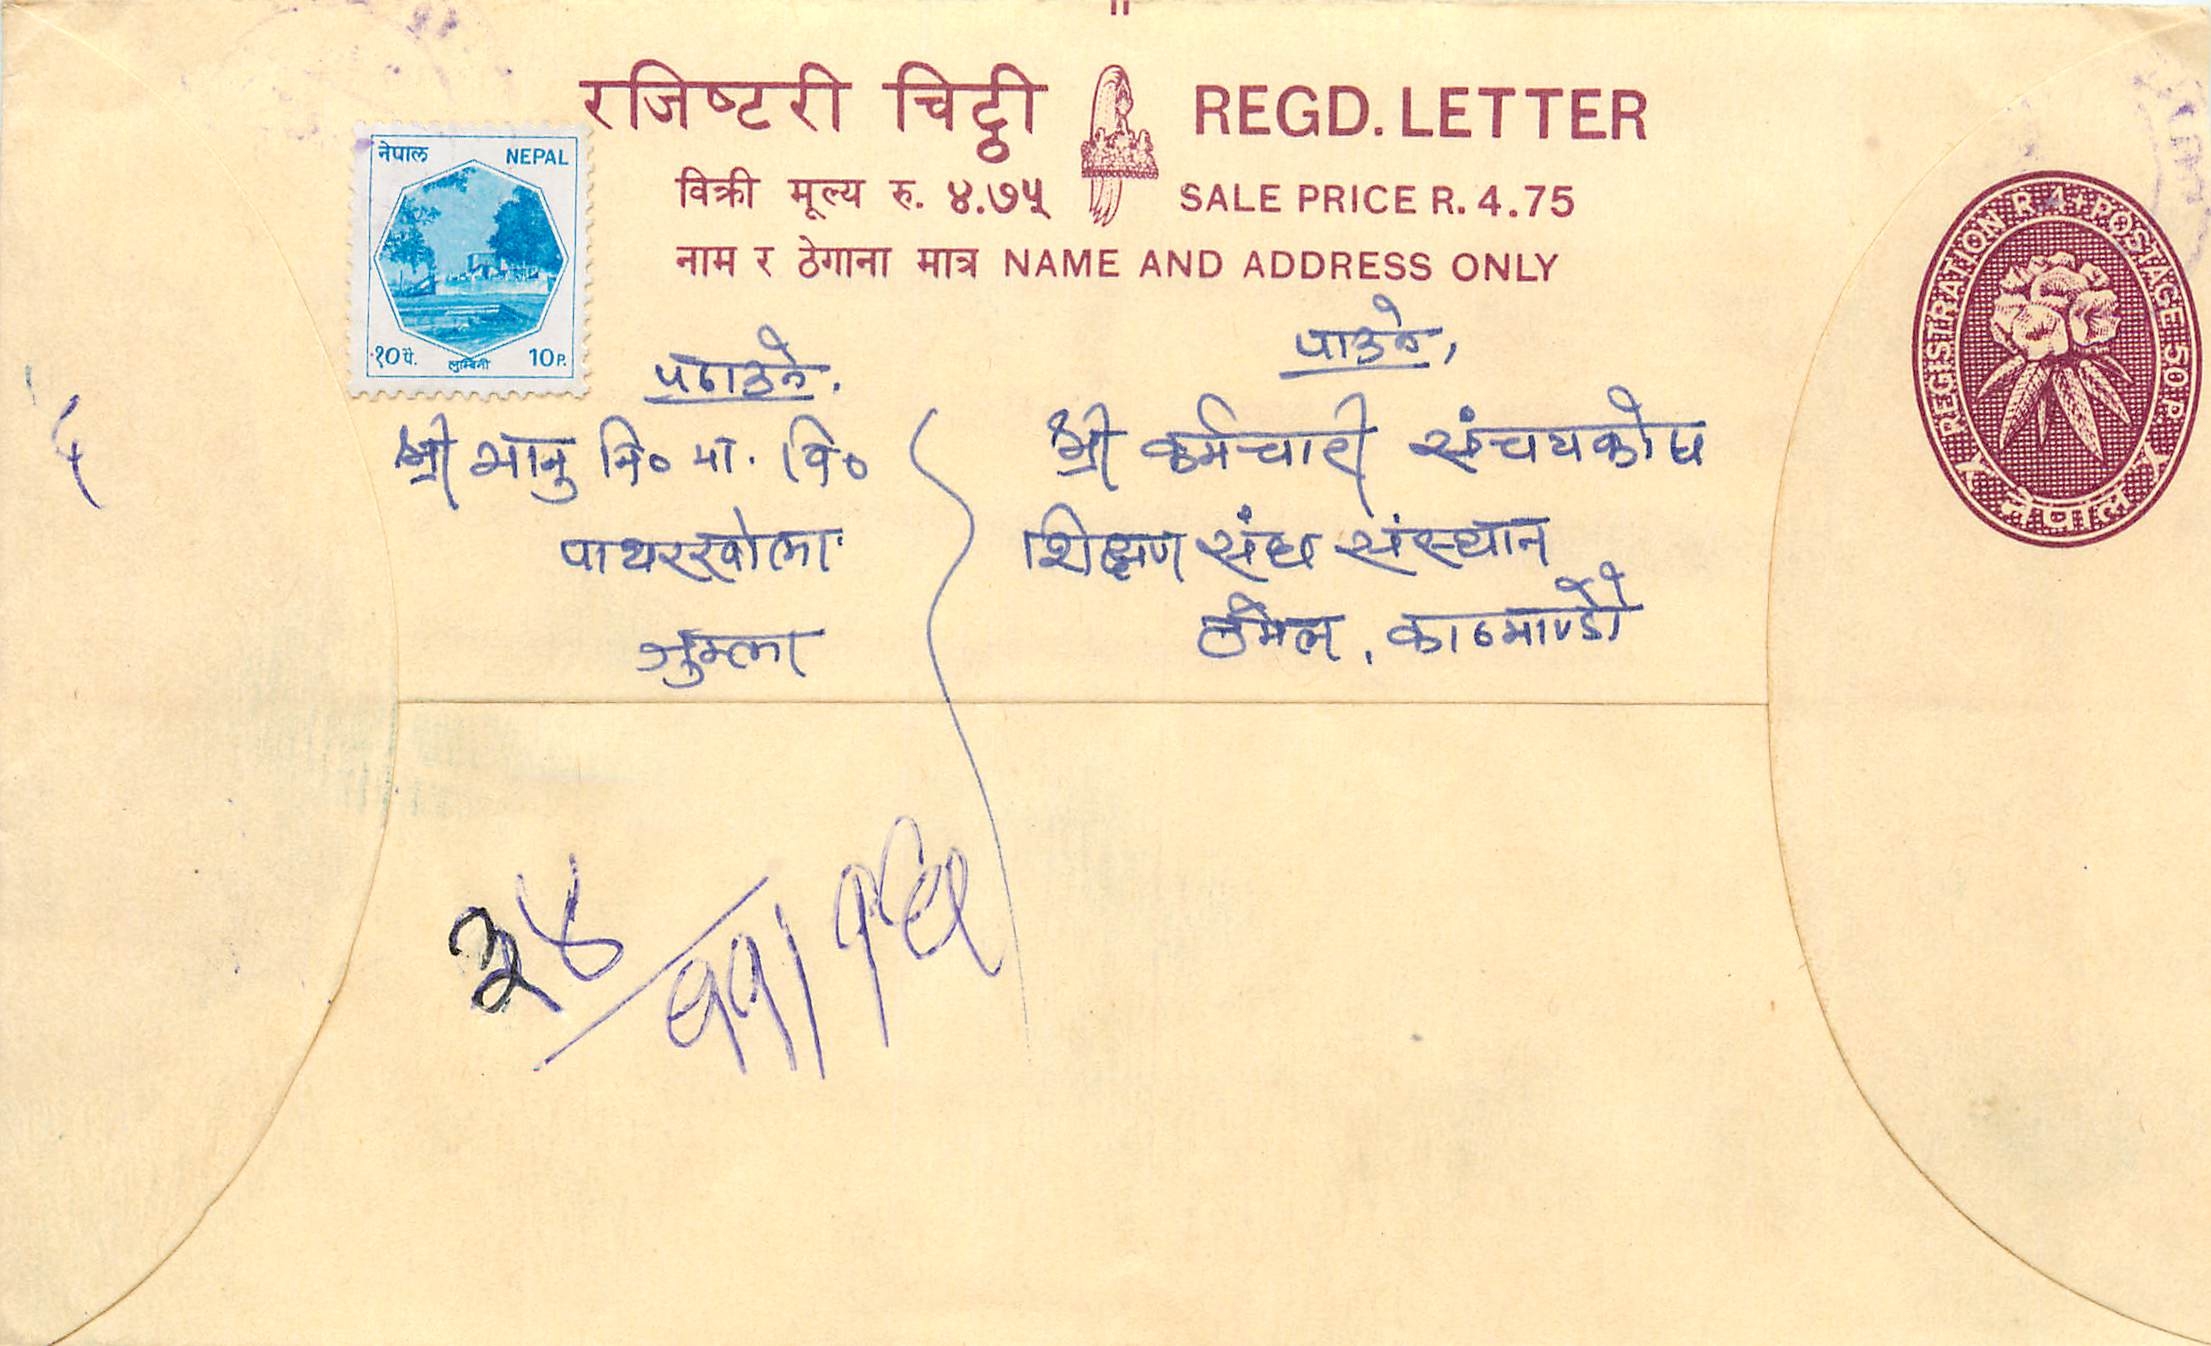 रजिष्टरी चिट्ठी REGD. LETTER
विक्री मूल्य रु. ४.७५ SALE PRICE R. 4.75
नाम र ठेगाना मात्र NAME AND ADDRESS ONLY
नेपाल NEPAL
१० पै. लुम्बिनी 10 P.
REGISTRATION R 4 + POSTAGE 50 P.
नेपाल
पठाउने.
श्री भानु नि० मा. वि०
पाथरखोला
जुम्ला
पाउने,
श्री कर्मचारी संचयकोष
शिक्षण संघ संस्थान
ठमेल, काठमाण्डौ